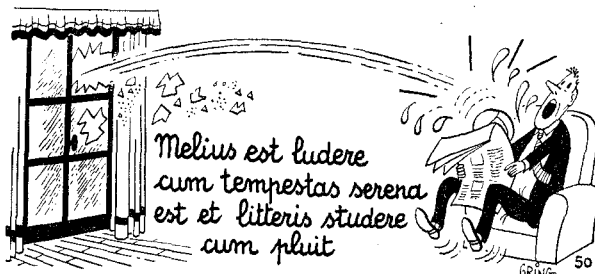 Melius est ludere
cum tempestas serena
est et litteris studere
cum pluit
GRING
50